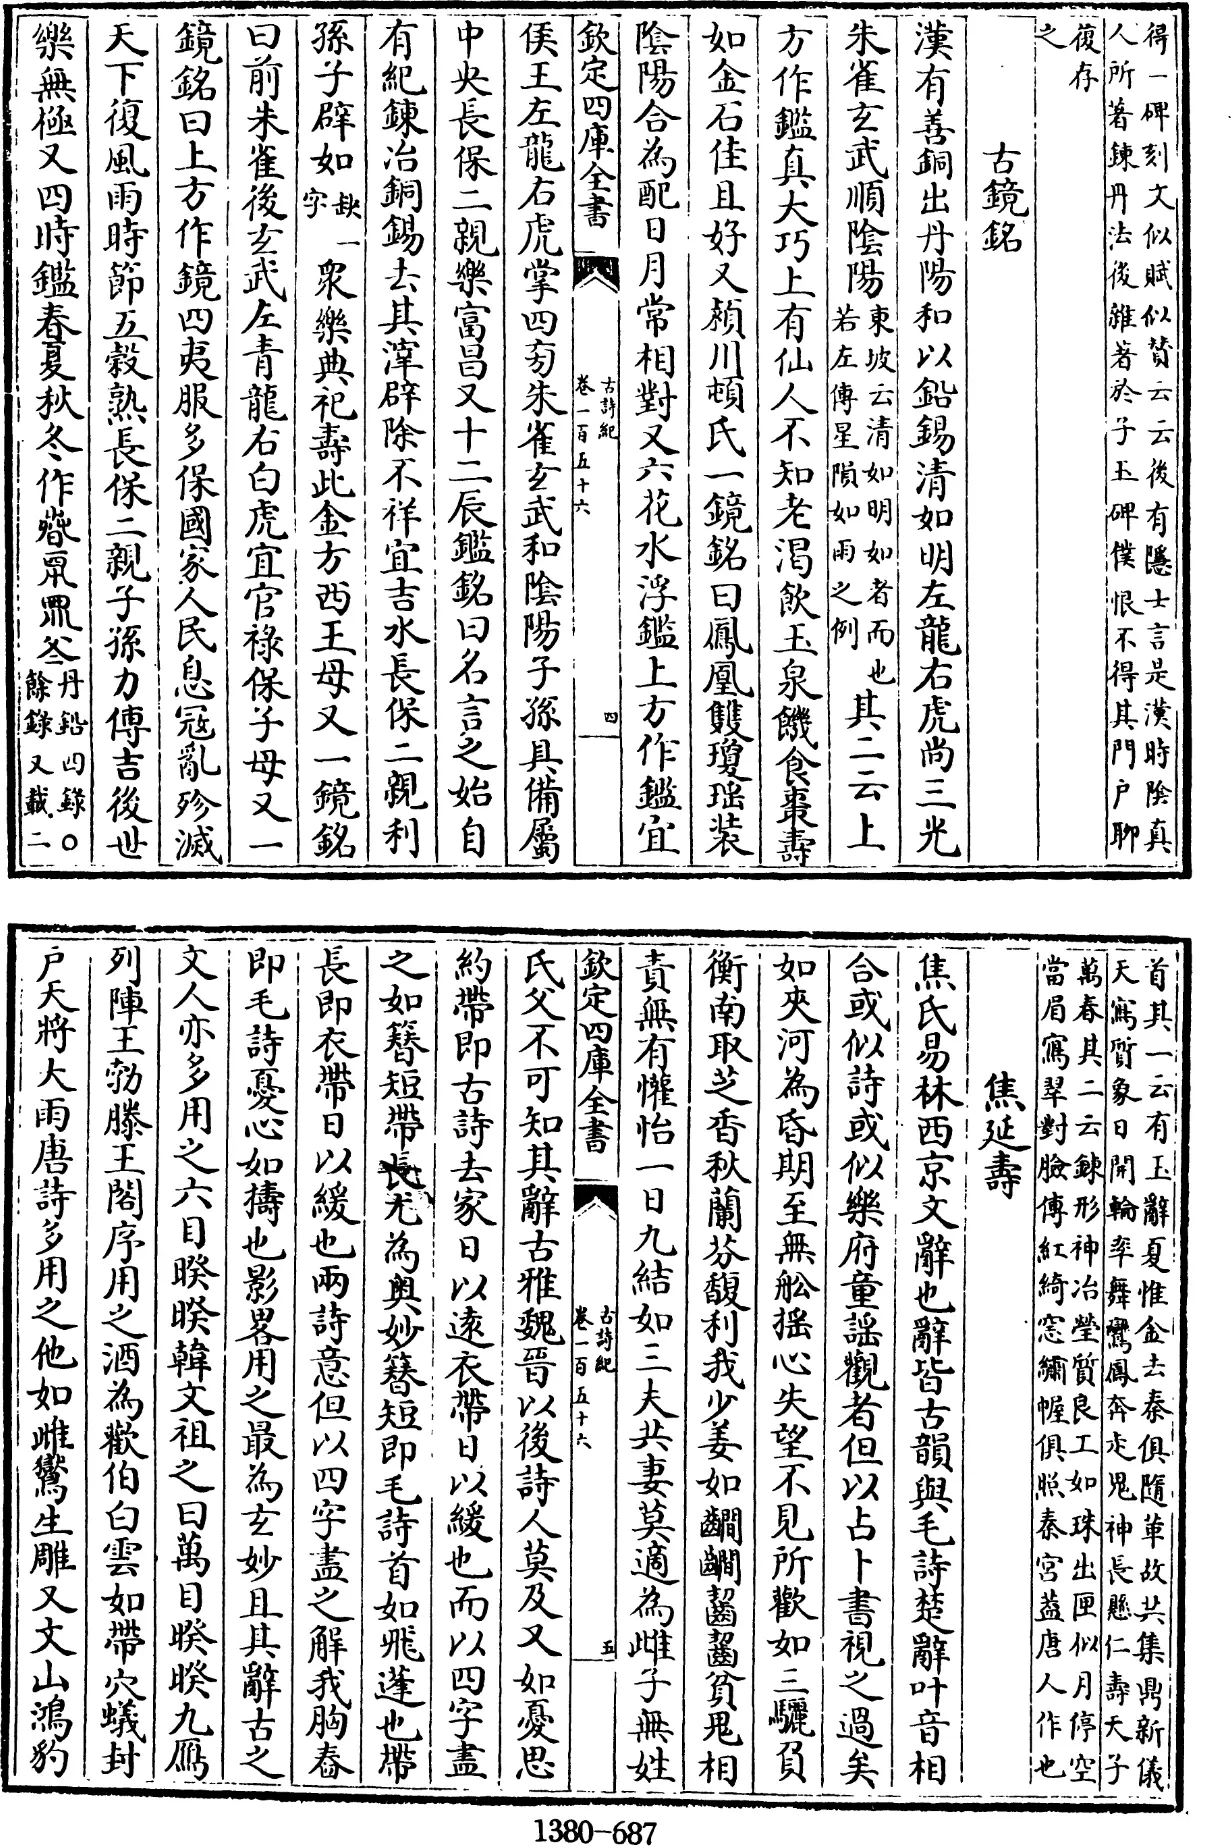 得一碑刻文似賦似贊云云後有隱士言是漢時陰真
人所著鍊丹法後雜著於子玉碑僕恨不得其門戶聊
復存
之
古鏡銘
漢有善銅出丹陽和以鉛錫清如明左龍右虎尚三光
朱雀玄武順陰陽東坡云清如明如者而也若左傳星隕如雨之例其二云上
方作鑑真大巧上有仙人不知老渴飲玉泉饑食棗壽
如金石佳且好又潁川頓氏一鏡銘曰鳳凰雙瓊瑶装
陰陽合為配日月常相對又六花水浮鑑上方作鑑宜
欽定四庫全書
古詩紀
卷一百五十六
四
侯王左龍右虎掌四旁朱雀玄武和陰陽子孫具備屬
中央長保二親樂富昌又十二辰鑑銘曰名言之始自
有紀鍊冶銅錫去其滓辟除不祥宜吉水長保二親利
孫子辟如缺一字衆樂典祀壽此金方西王母又一鏡銘
曰前朱雀後玄武左青龍右白虎宜官祿保子母又一
鏡銘曰上方作鏡四夷服多保國家人民息冦亂殄滅
天下復風雨時節五穀熟長保二親子孫力傳吉後世
樂無極又四時鑑春夏秋冬作丹鉛四錄○餘錄又載二
首其一云有玉辭夏惟金去秦俱隨革故共集鼎新儀
天寫質象日開輪率舞鸞鳳奔走鬼神長懸仁壽天子
萬春其二云鍊形神冶瑩質良工如珠出匣似月停空
當眉寫翠對臉傅紅綺窓繡幄俱照秦宮蓋唐人作也
焦延壽
焦氏易林西京文辭也辭皆古韻與毛詩楚辭叶音相
合或似詩或似樂府童謡觀者但以占卜書視之過矣
如夾河為昏期至無船摇心失望不見所歡如三驪負
衡南取芝香秋蘭芬馥利我少姜如齰齰齧齧貧鬼相
責無有懽怡一日九結如三夫共妻莫適為雌子無姓
欽定四庫全書
古詩紀
卷一百五十六
五
氏父不可知其辭古雅魏晉以後詩人莫及又如憂思
約帶即古詩去家日以遠衣帶日以緩也而以四字盡
之如簪短帶長尤為奥妙簪短即毛詩首如飛蓬也帶
長即衣帶日以緩也兩詩意但以四字盡之解我胸舂
即毛詩憂心如擣也影畧用之最為玄妙且其辭古之
文人亦多用之六目睽睽韓文祖之曰萬目睽睽九鴈
列陣王勃滕王閣序用之酒為歡伯白雲如帶穴蟻封
戶天將大雨唐詩多用之他如雌鸞生雕又文山鴻豹
1380-687